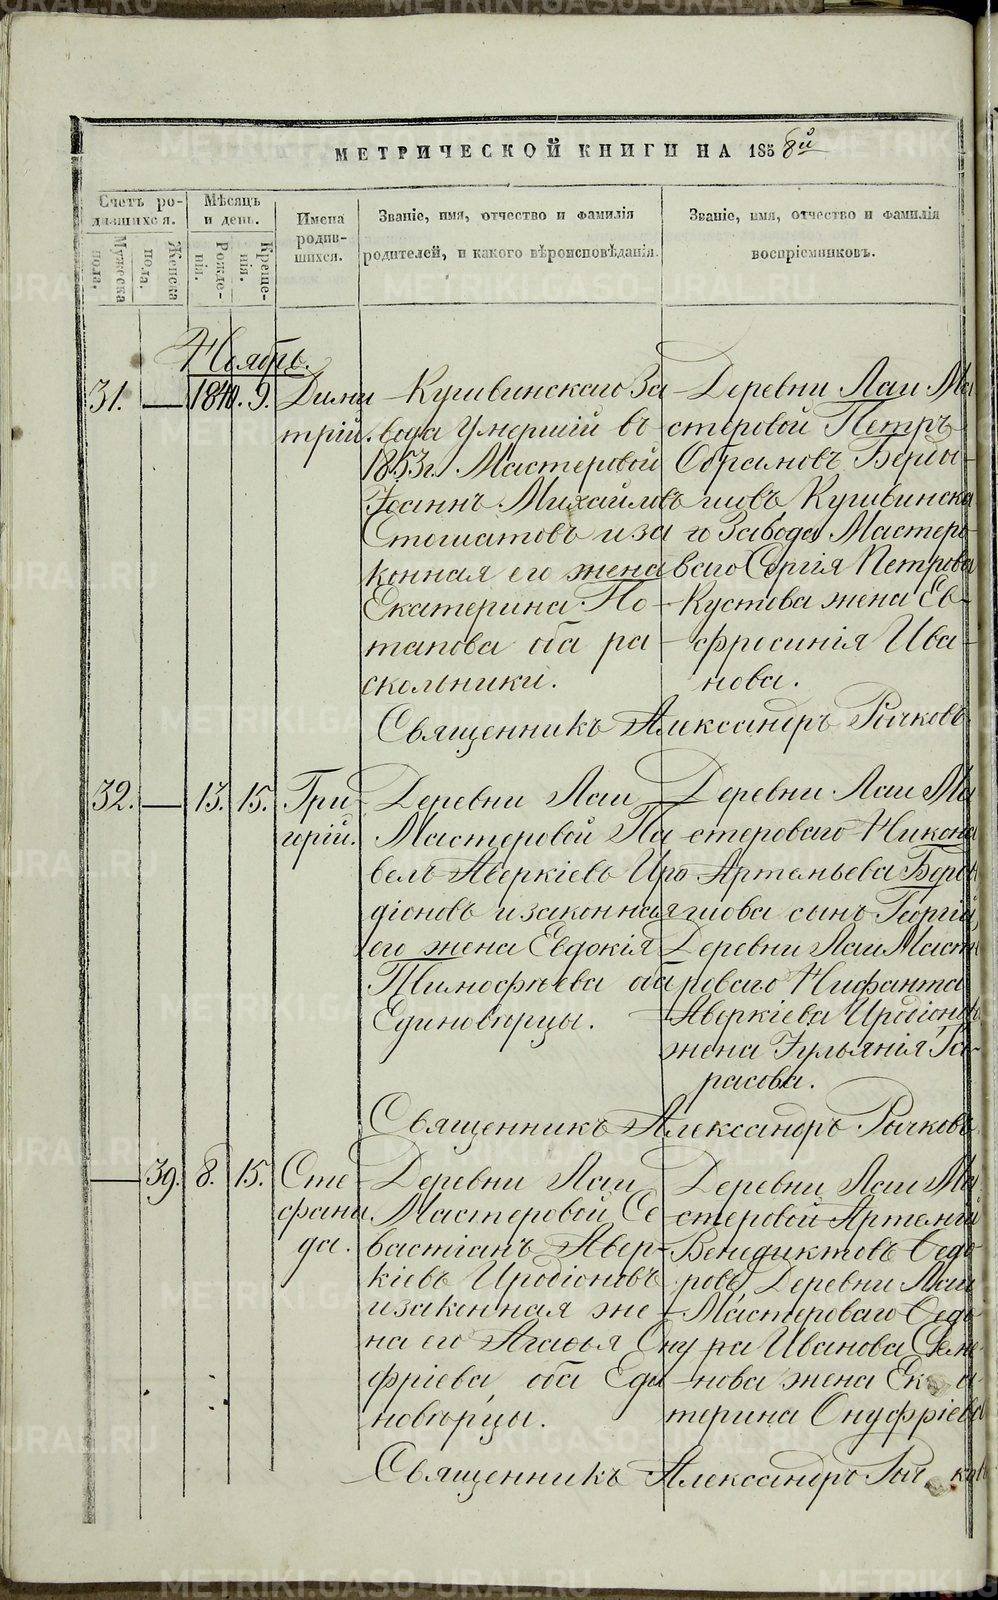 МЕТРИЧЕСКОЙ КНИГИ НА 1858й
Счетъ ро-
дившихся.
Мѣсяцъ
и день.
Имена
родив-
шихся.
Званіе, имя, отчество и фамилія
родителей, и какого вѣроисповѣданія.
Званіе, имя, отчество и фамилія
воспріемниковъ.
Мужеска
пола.
Женска
пола.
Рожде-
нія.
Креще-
нія.
Ноябрь.
31. — 9. Дими
трій.
Кушвинскаго За
вода умершій въ
1853 г. Мастеровой
Іоаннъ Михайловъ
и за
конная его жена
Екатерина По
тапова оба ра
скольники.
Деревни Лаи Ма
стеровой Петръ
Кушвинска
го Завода Мастеро
ваго Сергія Петрова
жена Ев
фросинія Ива
нова.
Священникъ Александръ Рычковъ
32. — 13. 15. Гри
горій.
Деревни Лаи
Мастеровой Па
велъ Аверкіевъ Иро
діоновъ и законная
его жена Евдокія
Тимофѣева оба
Единовѣрцы.
Деревни Лаи Ма
стероваго Никона
Артемьева
сынъ Георгій
Деревни Лаи Масте
роваго Нифанта
Аверкіева Иродіонова
жена Іульянія Та
расова.
Священникъ Александръ Рычковъ
— 39. 8. 15. Сте
фани
да.
Деревни Лаи
Мастеровой Се
вастіанъ Авер
кіевъ Иродіоновъ
и законная же
на его Агафья Ону
фріева, оба Еди
новѣрцы.
Деревни Лаи Ма
стеровой Артемій
Венедиктовъ Седо
ровъ Деревни Лаи
Мастероваго Седо
ра Иванова Семе
нова жена Ека
терина Онуфріева
Священникъ Александръ Рычковъ
METRIKI.GASO-URAL.RU